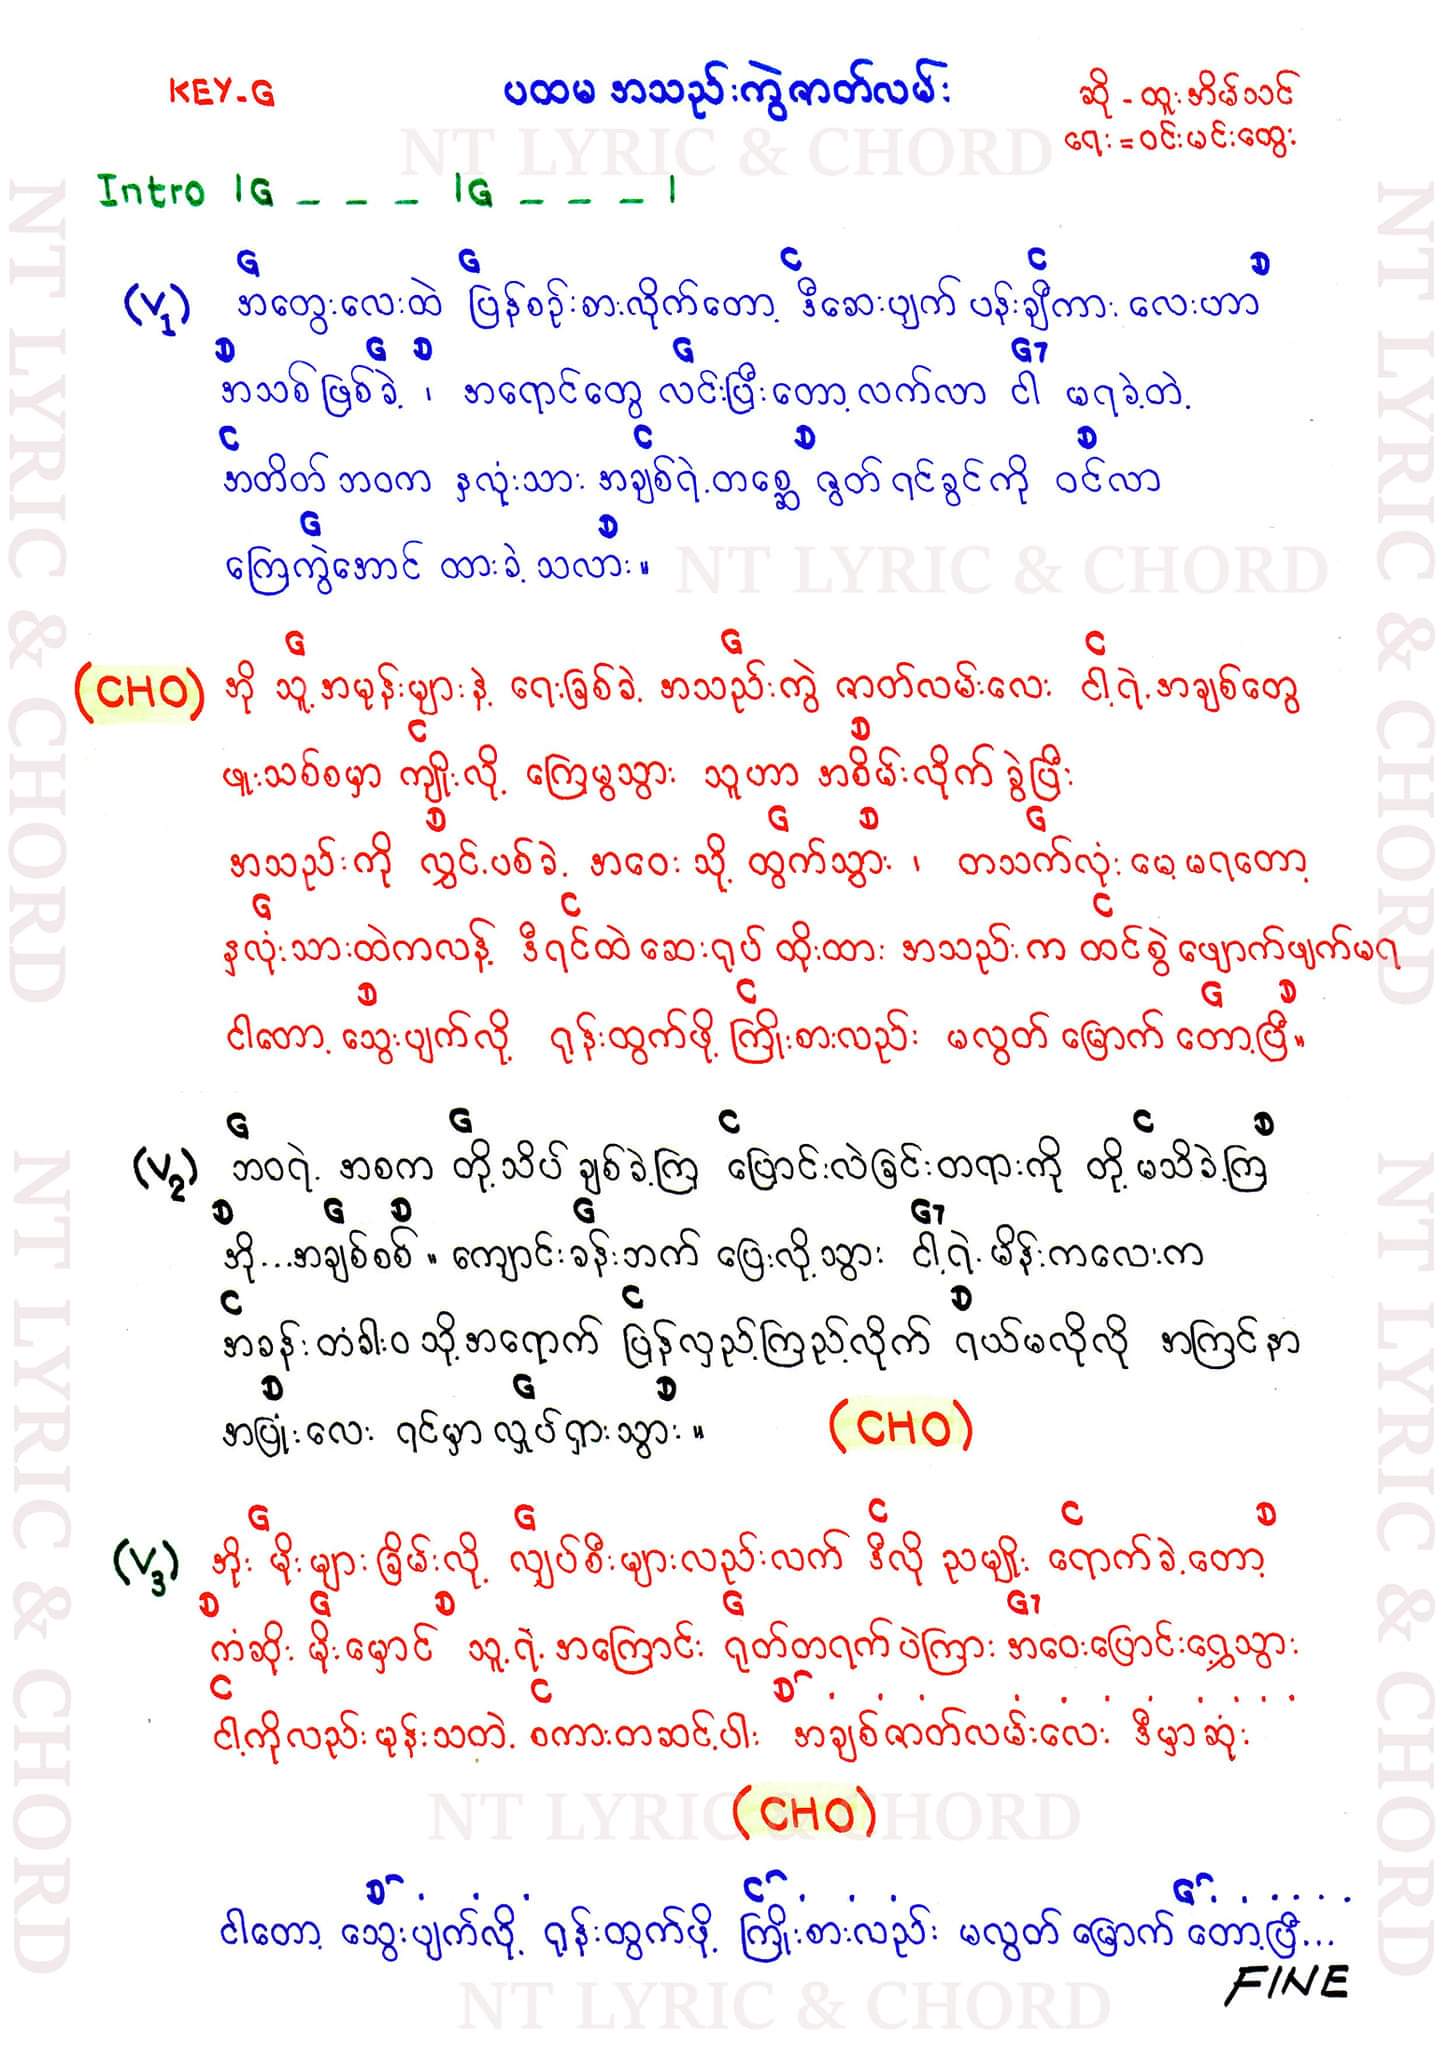 KEY-G
ပထမ အသည်းကွဲဇာတ်လမ်း
ဆို - ထူးအိမ်သင်
ရေး = ဝင်းမင်းထွေး
NT LYRIC & CHORD
Intro |G _ _ _ |G _ _ _ |
G G C C D
(V1) အတွေးလေးထဲ ပြန်စဉ်းစားလိုက်တော့ ဒီဆေးပျက် ပန်းချီကား လေးဟာ
D G D G G7
အသစ်ဖြစ်ခဲ့ ၊ အရောင်တွေ လင်းပြီးတော့ လက်လာ ငါ မရခဲ့တဲ့
C C D D
အတိတ် ဘဝက နှလုံးသား အချစ်ရဲ့ တစ္ဆေ ဇွတ် ရင်ခွင်ကို ဝင်လာ
G D
ကြေကွဲအောင် ထားခဲ့ သလား။
NT LYRIC & CHORD
G G C
(CHO) အို သူ့ အမုန်းများနဲ့ ရေးခြစ်ခဲ့ အသည်းကွဲ ဇာတ်လမ်းလေး ငါ့ရဲ့ အချစ်တွေ
C D
ဖူးသစ်စမှာ ကျိုးလို့ ကြေမွသွား သူဟာ အစိမ်းလိုက် ခွဲပြီး
D G D G
အသည်းကို လွှင့်ပစ်ခဲ့ အဝေးသို့ ထွက်သွား ၊ တသက်လုံး မေ့မရတော့
G C C
နှလုံးသားထဲကလန့် ဒီရင်ထဲ ဆေးရုပ် ထိုးထား အသည်းက ထင်စွဲ ဖျောက်ဖျက်မရ
D C G D
ငါတော့ သွေးပျက်လို့ ရုန်းထွက်ဖို့ ကြိုးစားလည်း မလွတ် မြောက် တော့ပြီ။
G G C C D
(V2) ဘဝရဲ့ အစက တို့သိပ် ချစ်ခဲ့ကြ ပြောင်းလဲခြင်းတရားကို တို့ မသိခဲ့ကြ
D G D G G7
အို...အချစ်စစ် ။ ကျောင်းခန်းဘက် ပြေးလို့သွား ငါ့ရဲ့ မိန်းကလေးက
C C D
အခန်းတံခါးဝ သို့အရောက် ပြန်လှည့်ကြည့်လိုက် ရယ်မလိုလို အကြင်နာ
D G D
အပြုံးလေး ရင်မှာ လှုပ်ရှားသွား ။ (CHO)
G G C C D
(V3) အိုး မိုးများခြိမ်းလို့ လျှပ်စီးများလည်းလက် ဒီလို ညမျိုး ရောက်ခဲ့တော့
D G D G G7
ကံဆိုး မိုးမှောင် သူ့ရဲ့ အကြောင်း ရုတ်တရက်ပဲကြား အဝေးပြောင်းရွှေ့သွား
C C D
ငါ့ကိုလည်းမုန်းသတဲ့ စကားတဆင့်ပါး အချစ်ဇာတ်လမ်းလေး ဒီမှာဆုံး
(CHO)
NT LYRIC & CHORD
D C G
ငါတော့ သွေးပျက်လို့ ရုန်းထွက်ဖို့ ကြိုးစားလည်း မလွတ် မြောက် တော့ပြီ...
FINE
NT LYRIC & CHORD
NT LYRIC & CHORD
NT LYRIC & CHORD
NT LYRIC & CHORD
NT LYRIC & CHORD